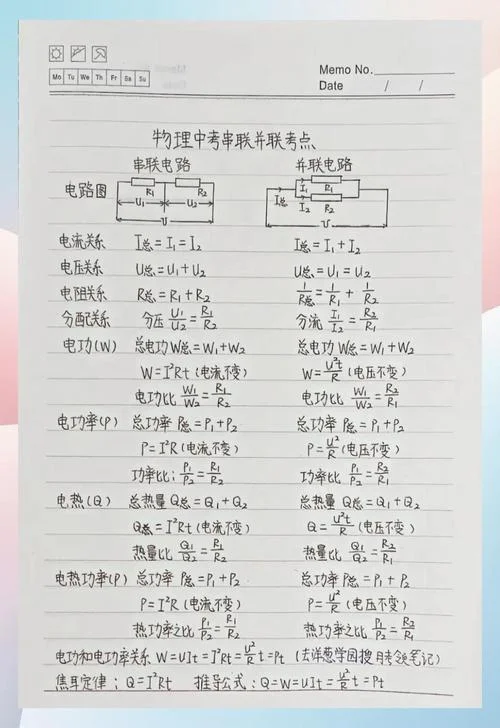 Mo Tu We Th Fr Sa Su
Memo No.
Date / /
物理中考串联并联考点
串联电路 并联电路
电路图 R₁ R₂ U₁ U₂ U I总 I₁ R₁ I₂ R₂ U
电流关系 I总=I₁=I₂ I总=I₁+I₂
电压关系 U总=U₁+U₂ U总=U₁=U₂
电阻关系 R总=R₁+R₂ 1/R总=1/R₁+1/R₂
分配关系 分压 U₁/U₂=R₁/R₂ 分流 I₁/I₂=R₂/R₁
电功(W) 总电功W总=W₁+W₂ 总电功W总=W₁+W₂
W=I²Rt(电流不变) W=U²t/R(电压不变)
电功比 W₁/W₂=R₁/R₂ 电功比 W₁/W₂=R₂/R₁
电功率(P) 总功率 P总=P₁+P₂ 总功率 P总=P₁+P₂
P=I²R(电流不变) P=U²/R(电压不变)
功率比:P₁/P₂=R₁/R₂ 功率比 P₁/P₂=R₂/R₁
电热(Q) 总热量Q总=Q₁+Q₂ 总热量Q总=Q₁+Q₂
Q总=I²Rt(电流不变) Q=U²t/R(电压不变)
热量比 Q₁/Q₂=R₁/R₂ 热量比 Q₁/Q₂=R₂/R₁
电热功率(P) 总功率 P总=P₁+P₂ 总功率 P总=P₁+P₂
P=I²R(电流不变) P=U²/R(电压不变)
热功率之比 P₁/P₂=R₁/R₂ 热功率之比 P₁/P₂=R₂/R₁
电功和电功率关系 W=UIt=I²Rt=U²/R t=Pt (去洋葱学园搜月考领笔记)
焦耳定律:Q=I²Rt 推导公式:Q=W=UIt=U²/R t=Pt